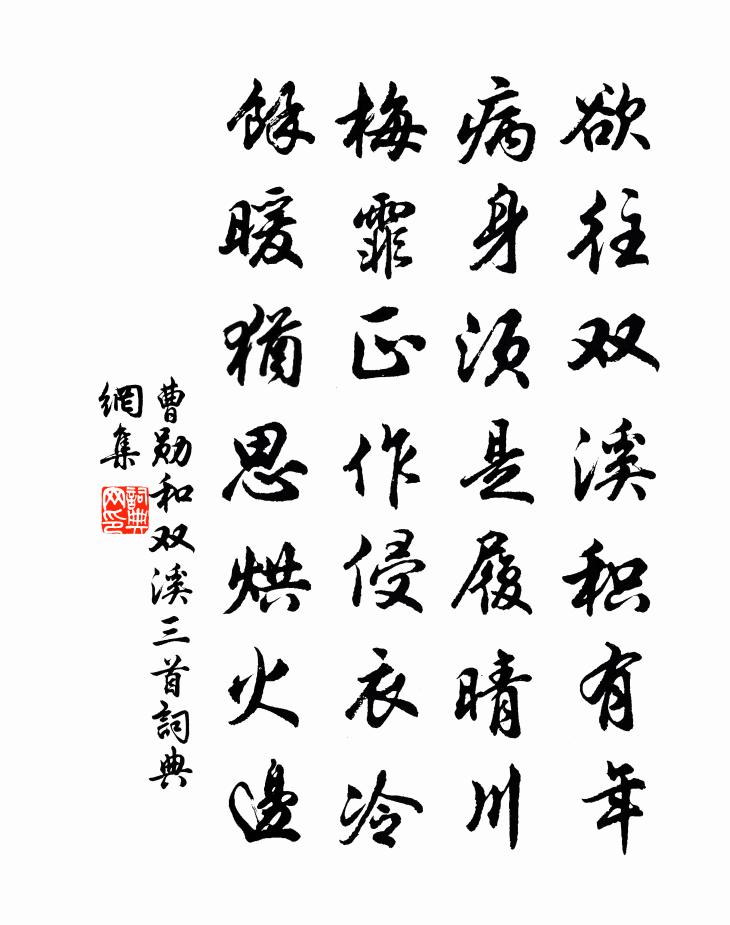 欲往双溪积有年
病身须是履晴川
梅霏正作侵衣冷
馀暖犹思烘火邊
曹勋和双溪三首詞典
網集
詞典
网印